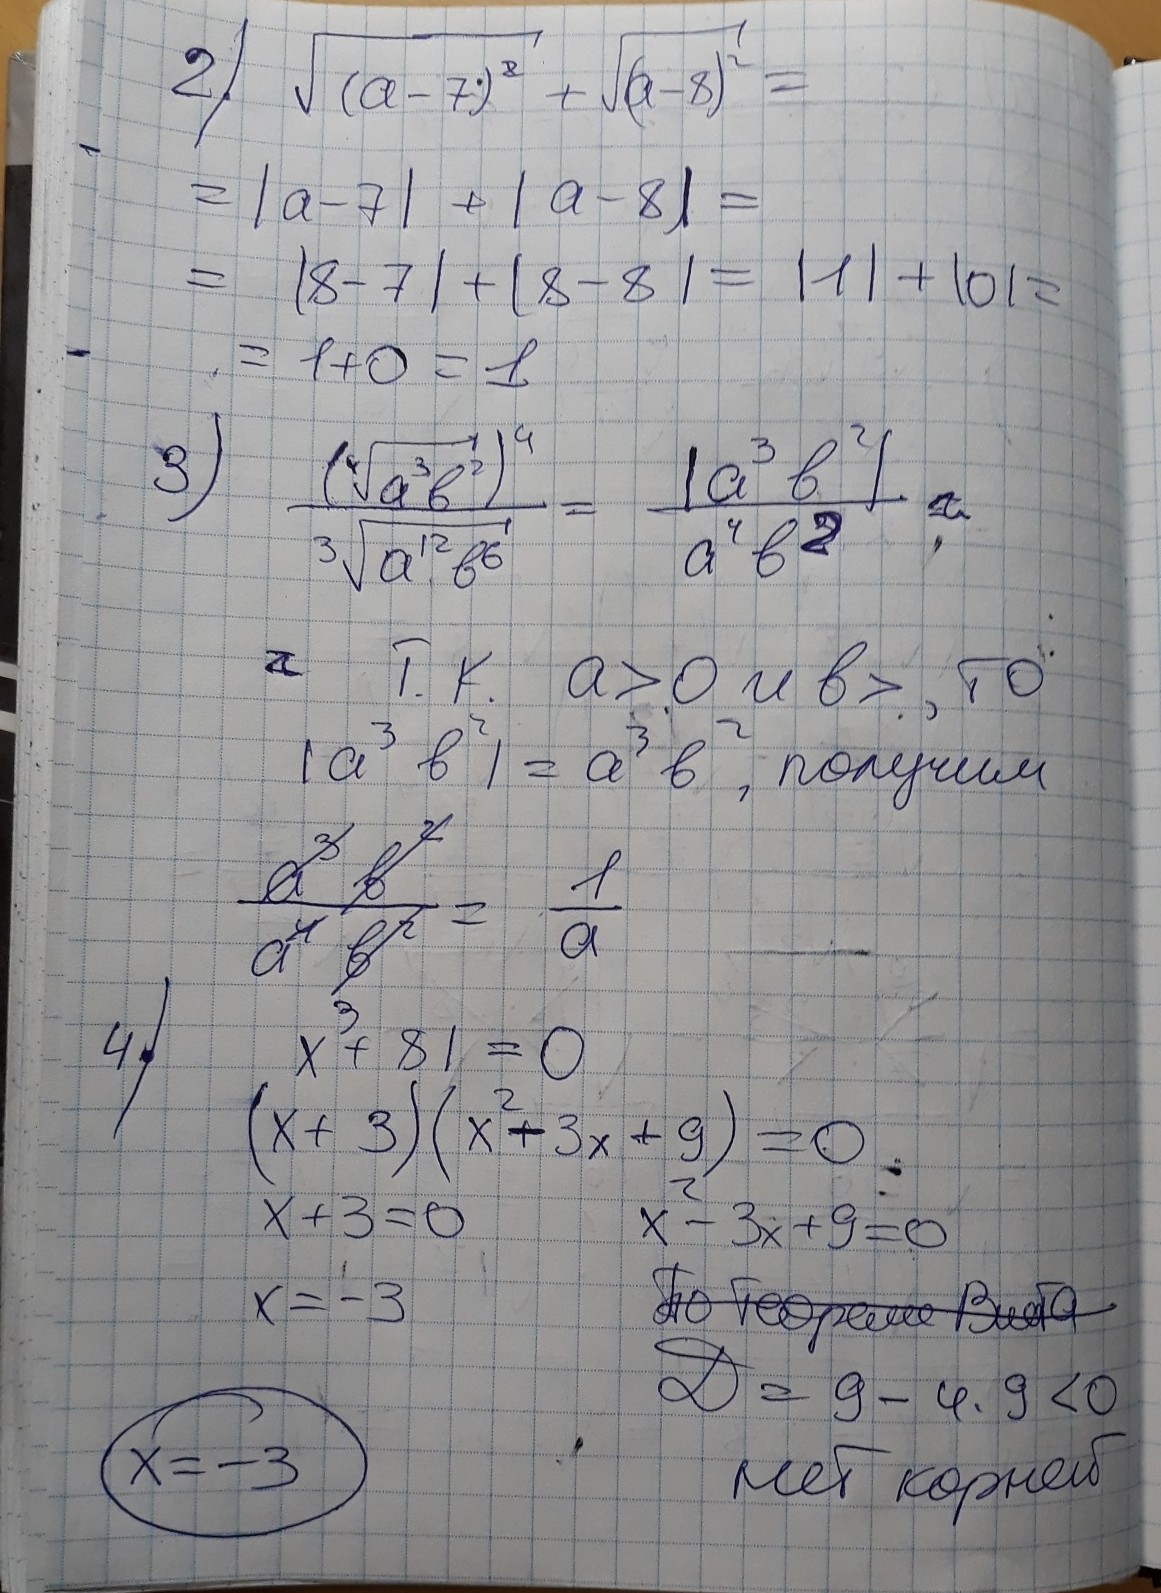 2) √(a-7)² + √(a-8)² =
= |a-7| + |a-8| =
= |8-7| + |8-8| = |1| + |0| =
= 1+0 = 1
3) (⁴√a³b²)⁴ / ³√a¹²b⁶ = |a³b²| / a⁴b² =
= Т.к. a>0 и b>, то
|a³b²| = a³b², получим
a³b² / a⁴b² = 1/a
4) x³ + 81 = 0
(x+3)(x²-3x+9) = 0
x+3=0 x²-3x+9=0
x=-3 По теореме Виета
Д = 9-4·9<0
x=-3 нет корней